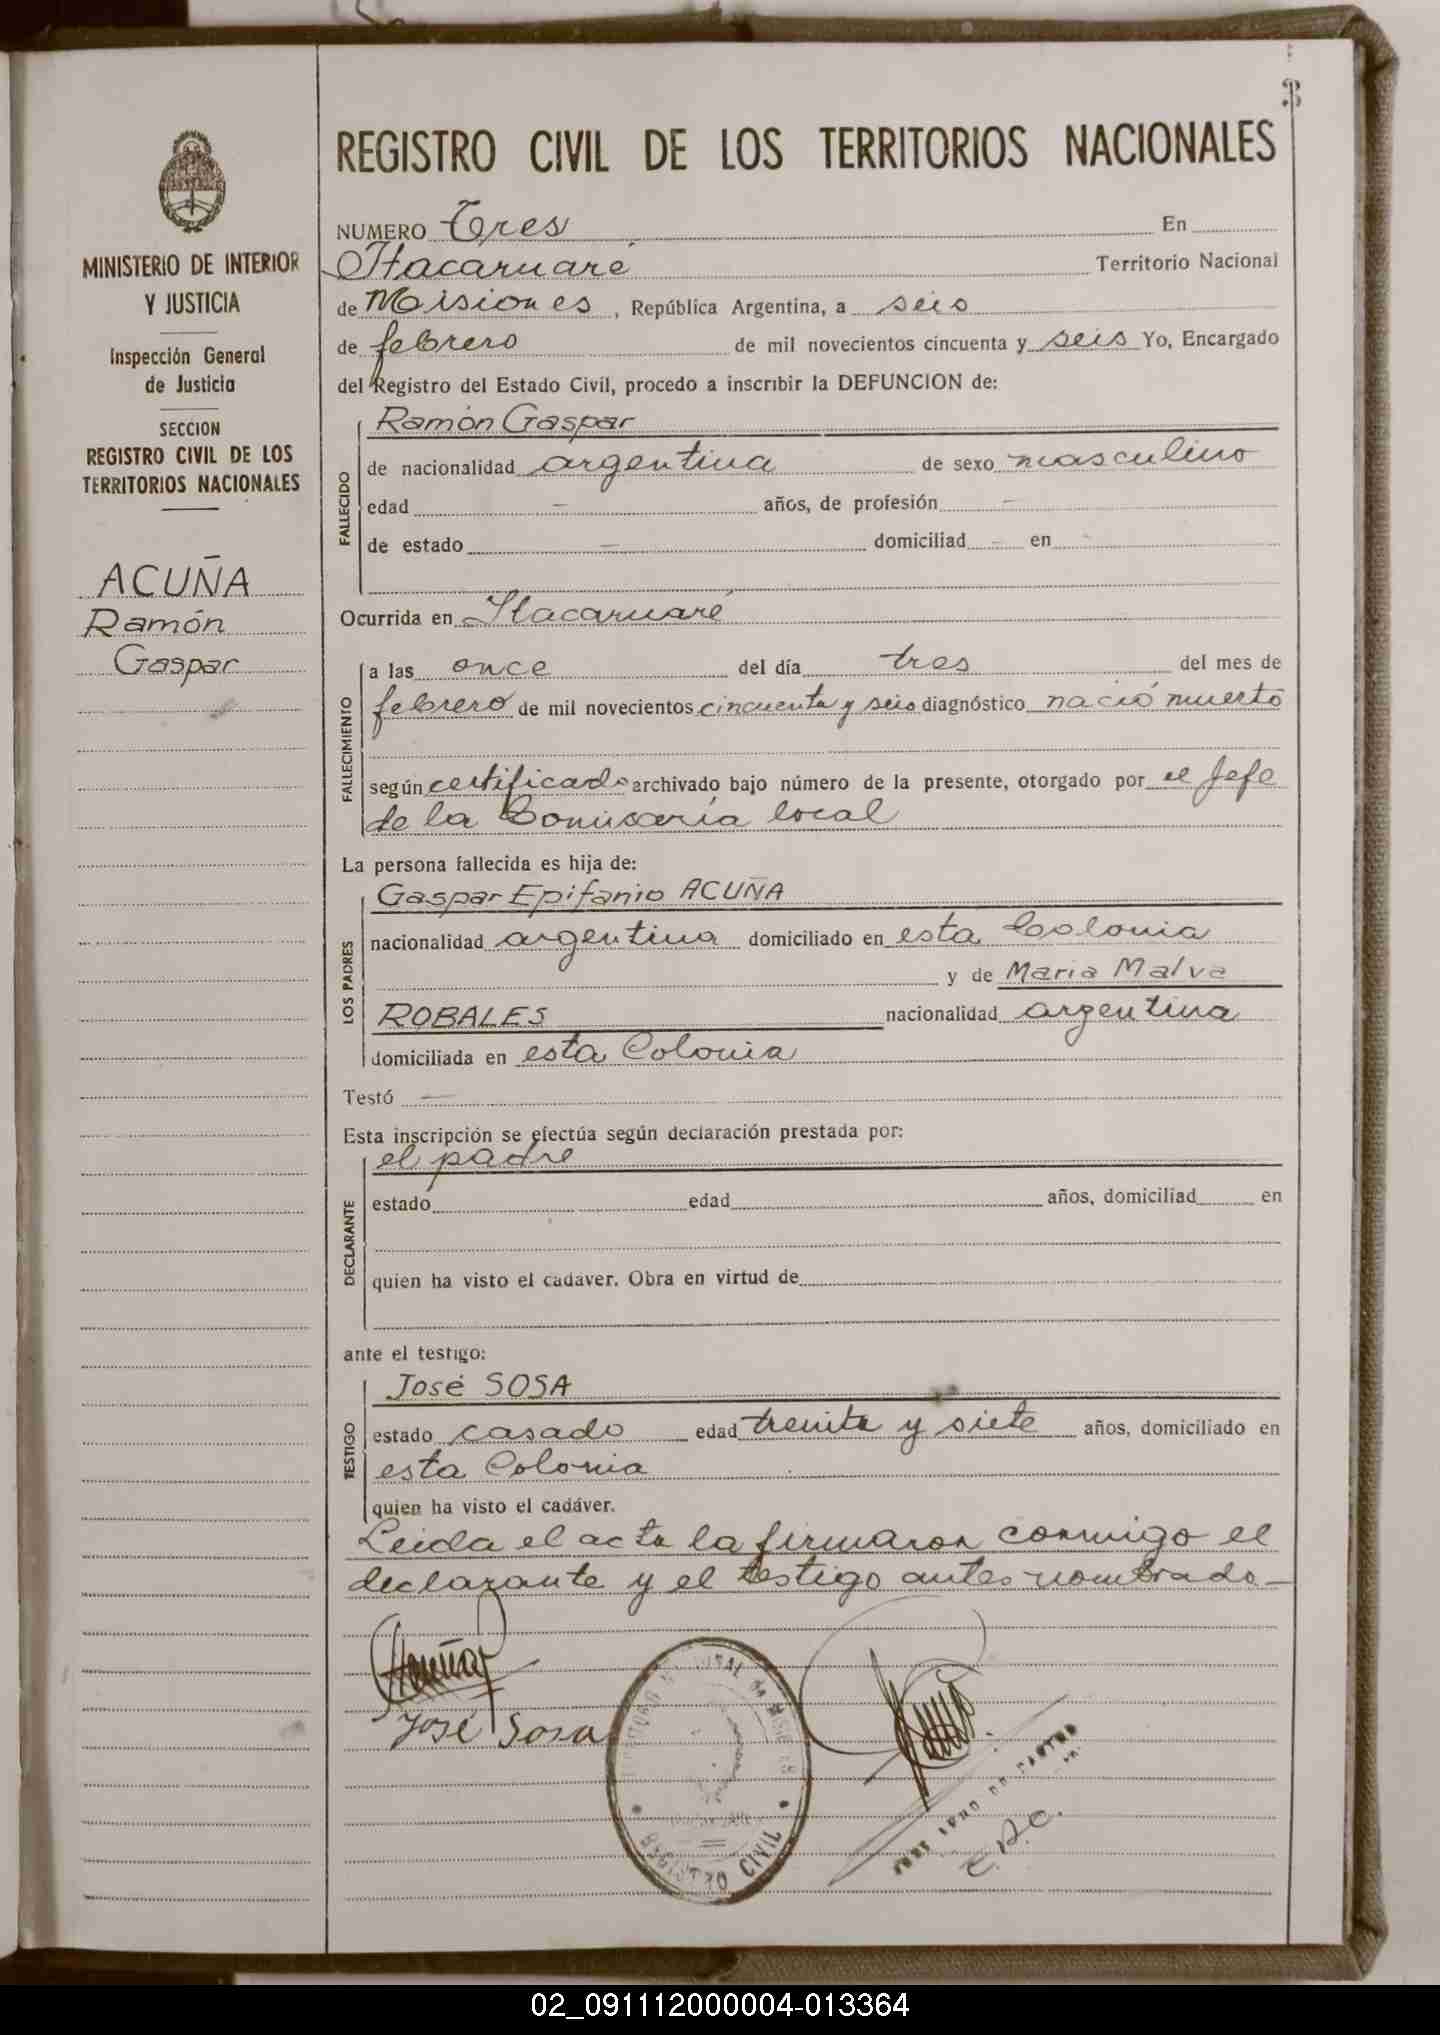 3
REGISTRO CIVIL DE LOS TERRITORIOS NACIONALES
MINISTERIO DE INTERIOR
Y JUSTICIA
Inspección General
de Justicia
SECCION
REGISTRO CIVIL DE LOS
TERRITORIOS NACIONALES
ACUÑA
Ramón
Gaspar
NUMERO Tres En
Itacaruaré Territorio Nacional
de Misiones, República Argentina, a seis
de febrero de mil novecientos cincuenta y seis Yo, Encargado
del Registro del Estado Civil, procedo a inscribir la DEFUNCION de:
FALLECIDO
Ramón Gaspar
de nacionalidad argentina de sexo masculino
edad — años, de profesión —
de estado — domiciliad - en -
Ocurrida en Itacaruaré
FALLECIMIENTO
a las once del día tres del mes de
febrero de mil novecientos cincuenta y seis diagnóstico nació muerto
según certificado archivado bajo número de la presente, otorgado por el Jefe
de la Comisaría local
La persona fallecida es hija de:
LOS PADRES
Gaspar Epifanio ACUÑA
nacionalidad argentina domiciliado en esta Colonia
y de Maria Malva
ROBALES nacionalidad argentina
domiciliada en esta Colonia
Testó —
Esta inscripción se efectúa según declaración prestada por:
DECLARANTE
el padre
estado edad años, domiciliad en
quien ha visto el cadáver. Obra en virtud de
ante el testigo:
TESTIGO
José SOSA
estado casado edad treinta y siete años, domiciliado en
esta Colonia
quien ha visto el cadáver.
Leida el acta la firmaron conmigo el
declarante y el testigo antes nombrado-
Acuña
José Sosa
REGISTRO CIVIL
02_091112000004-013364